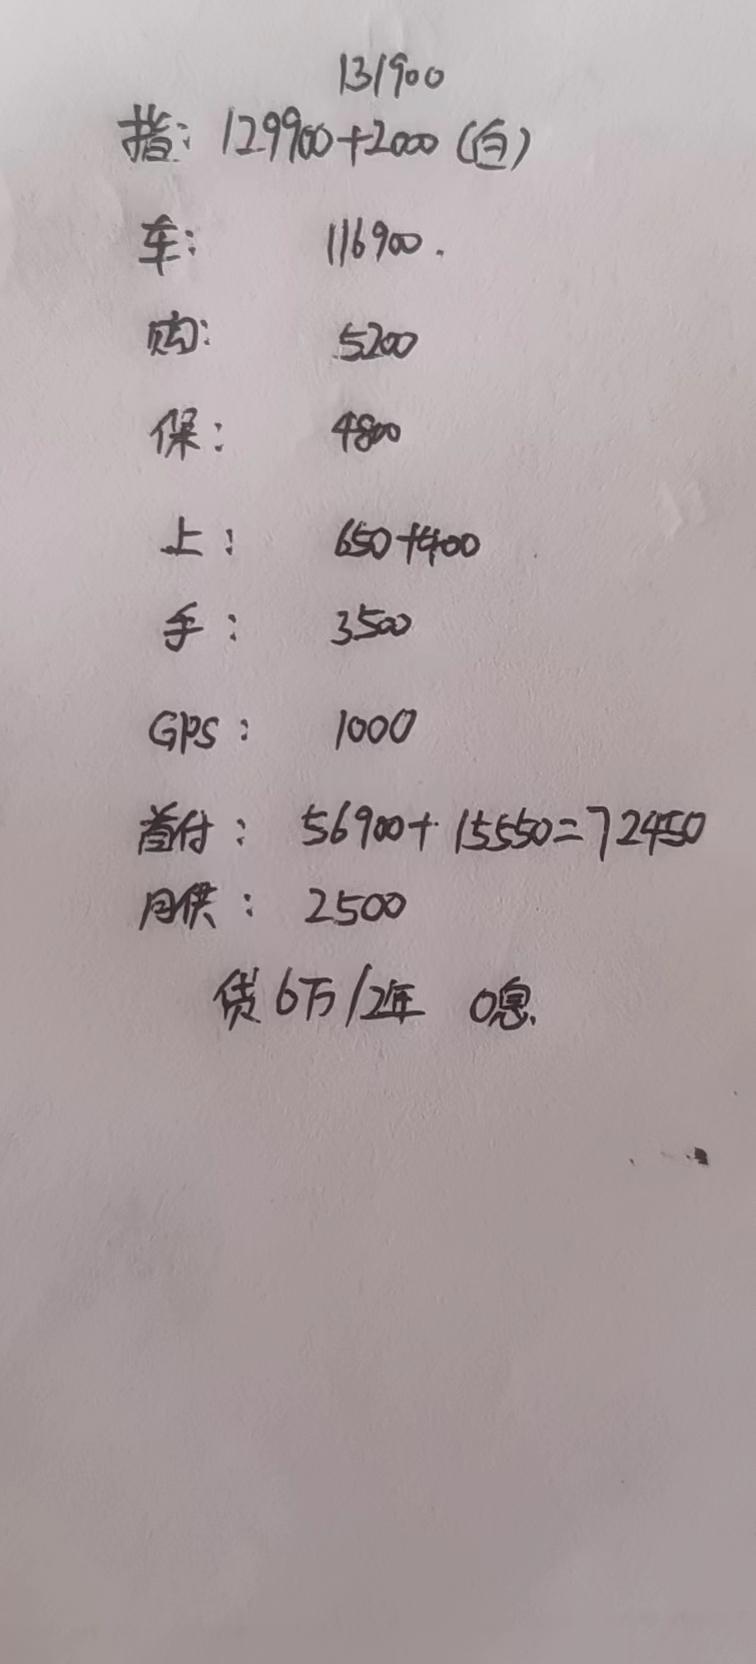 131900
指: 129900+2000 (白)
车: 116900.
购: 5200
保: 4800
上: 650+400
手: 3500
GPS: 1000
首付: 56900+15550=72450
月供: 2500
贷6万/2年 0息.